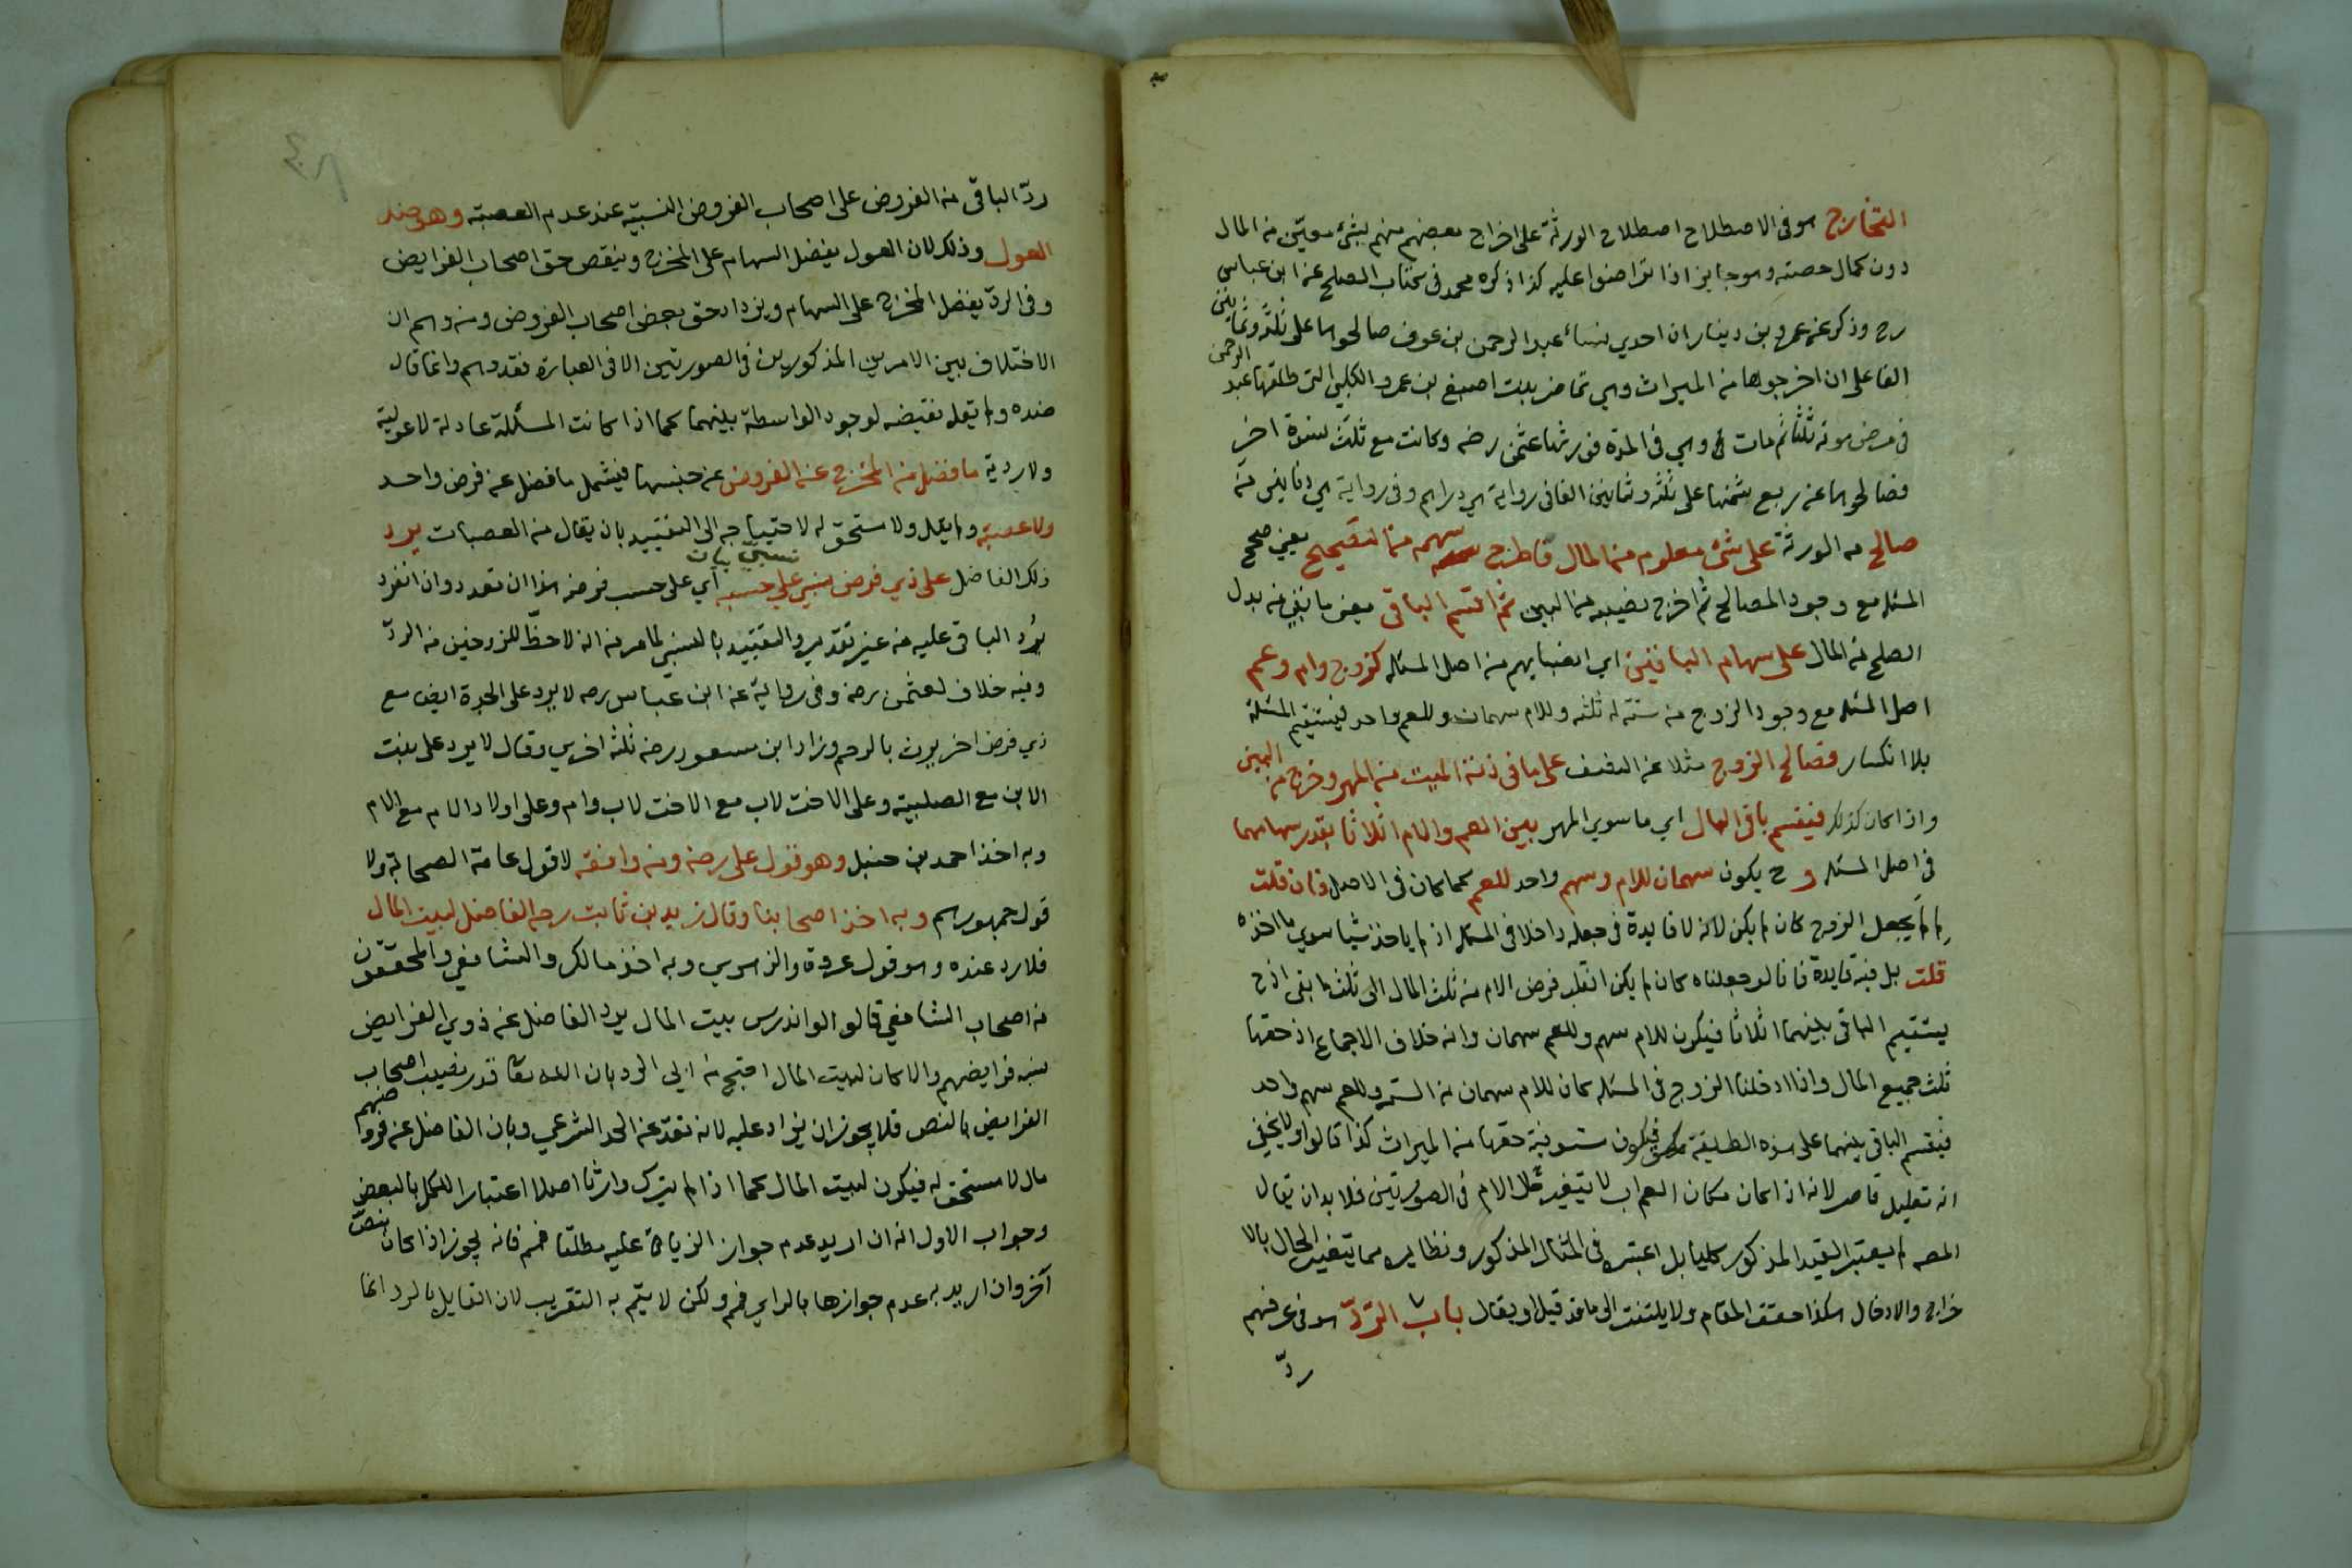 التخارج هو فى الاصطلاح اصطلاح الورثة على اخراج بعضهم منهم بشئ معين من المال
دون كمال حصته وهو جايز اذا تراضوا عليه كذا ذكره محمد فى كتاب الصلح عن ابن عباس
رح وذكر عن عمرو بن دينار ان احدي نساء عبد الرحمن بن عوف صالحوها على ثلثة وثمانين
الفا على ان اخرجوها من الميراث وهي تماضر بنت اصبغ بن عمرو الكلبي التى طلقها عبد الرحمن
فى مرض موته ثلثا ثم مات وهي فى العدة فورثها عثمن رضه وكانت مع ثلث نسوة اخر
فصالحوها عن ربع ثمنها على ثلثه وثمانين الفا فى رواية هي دراهم وفى رواية هي دنانير من
صالح من الورثة على شئ معلوم من المال فاطرح سهمه من التصحيح يعنى صحح
المسئله مع وجود المصالح ثم اخرج نصيبه من البين ثم اقسم الباقى يعنى ما بقى من بدل
الصلح من المال على سهام الباقين اي انصبايهم من اصل المسئله كزوج وام وعم
اصل المسئله مع وجود الزوج من ستة له ثلثه وللام سهمان وللعم واحد ليستقيم المسئلة
بلا انكسار فصالح الزوج مثلا عن النصف على ما فى ذمته الميت من المهر وخرج من البين
واذا كان كذلك فيقسم باقى المال اي ما سوي المهر بين العم والام اثلاثا بقدر سهامهما
فى اصل المسئله وح يكون سهمان للام وسهم واحد للعم كما كان فى الاصل فان قلت
لم لم يجعل الزوج كان لم يكن لانه لا فايدة فى جعله داخلا فى المسئله اذ لم ياخذ شيا سوي ما اخذه
قلت بل فيه فايدة فانا لو جعلناه كان لم يكن انقلب فرض الام من ثلث المال الى ثلث ما بقى اذ ح
يستقيم الباقى بينهما اثلاثا فيكون للام سهم وللعم سهمان وانه خلاف الاجماع اذ حقها
ثلث جميع المال واذا ادخلنا الزوج فى المسئله كان للام سهمان من الستة وللعم سهم واحد
فيقسم الباقى بينهما على هذه الطريقة فيكون مستوفية حقها من الميراث كذا قالوا ولا يخفى
انه تعليل قاصر لانه اذا كان مكان العم اب لا يتغير حال الام فى الصورتين فلا بد ان يقال
المصه لم يعتبر القيد المذكور كليا بل اعتبره فى المثال المذكور ونظايره مما يتغير الحال بالا
خراج والادخال هكذا حقق المقام ولا يلتفت الى ما قد قيل او يقال باب الردّ هو فى عرفهم
ردّ
ردّ الباقى من الفروض على اصحاب الفروض النسبية عند عدم العصبة وهو ضد
العول وذلك لان العول يفضل السهام على المخرج وينقص حق اصحاب الفرايض
وفى الردّ يفضل المخرج على السهام ويزداد حق بعض اصحاب الفروض ومن وهم ان
الاختلاف بين الامرين المذكورين فى الصورتين الا فى العبارة فقد وهم وانما قال
ضده ولم يقل نقيضه لوجود الواسطة بينهما كما اذا كانت المسئلة عادلة لا عولية
ولا ردية ما فضل من المخرج عن الفروض عن جنسها فيشمل ما فضل عن فرض واحد
ولا عصبة ولم يقل ولا مستحق له لاحتياجه الى التقييد بان يقال من العصبات يرد
ذلك الفاضل على ذي فرض نسبي على حسبه اي على حسب فرضه هذا ان تعدد وان انفرد
يُرد الباقى عليه من غير تقدير والتقييد بالنسبي لما مر من انه لا حظّ للزوجين من الردّ
وفيه خلاف لعثمن رضه وفى رواية عن ابن عباس رضه لا يرد على الجدة ايض مع
ذي فرض اخر يرث بالرحم وزاد ابن مسعود رضه ثلثه اخري وقال لا يرد على بنت
الابن مع الصلبية وعلى الاخت لاب مع الاخت لاب وام وعلى اولاد الام مع الام
وبه اخذ احمد بن حنبل وهو قول على رضه ومن وافقه لا قول عامة الصحابة ولا
قول جمهورهم وبه اخذ اصحابنا وقال زيد بن ثابت رضه الفاضل لبيت المال
فلا رد عنده وهو قول عروة والزهري وبه اخذ مالك والشافعى والمحققون
من اصحاب الشافعى قالوا لو اندرس بيت المال يرد الفاضل عن ذوي الفرايض
بنسبة فرايضهم والا كان لبيت المال احتج من ابى الرد بان الله تعا قدر نصيب اصحاب
الفرايض بالنص فلا يجوز ان يزاد عليه لانه تعدّ عن الحد الشرعي وبان الفاضل عن فروضهم
مال لا مستحق له فيكون لبيت المال كما اذا لم يترك وارثا اصلا اعتبارا للكل بالبعض
وجواب الاول انه ان اريد عدم جواز الزيادة عليه مطلقا فمم فانه يجوز اذا كان بنص
آخر وان اريد به عدم جوازها بالراي فمم ولكن لا يتم به التقريب لان القايل بالرد انما